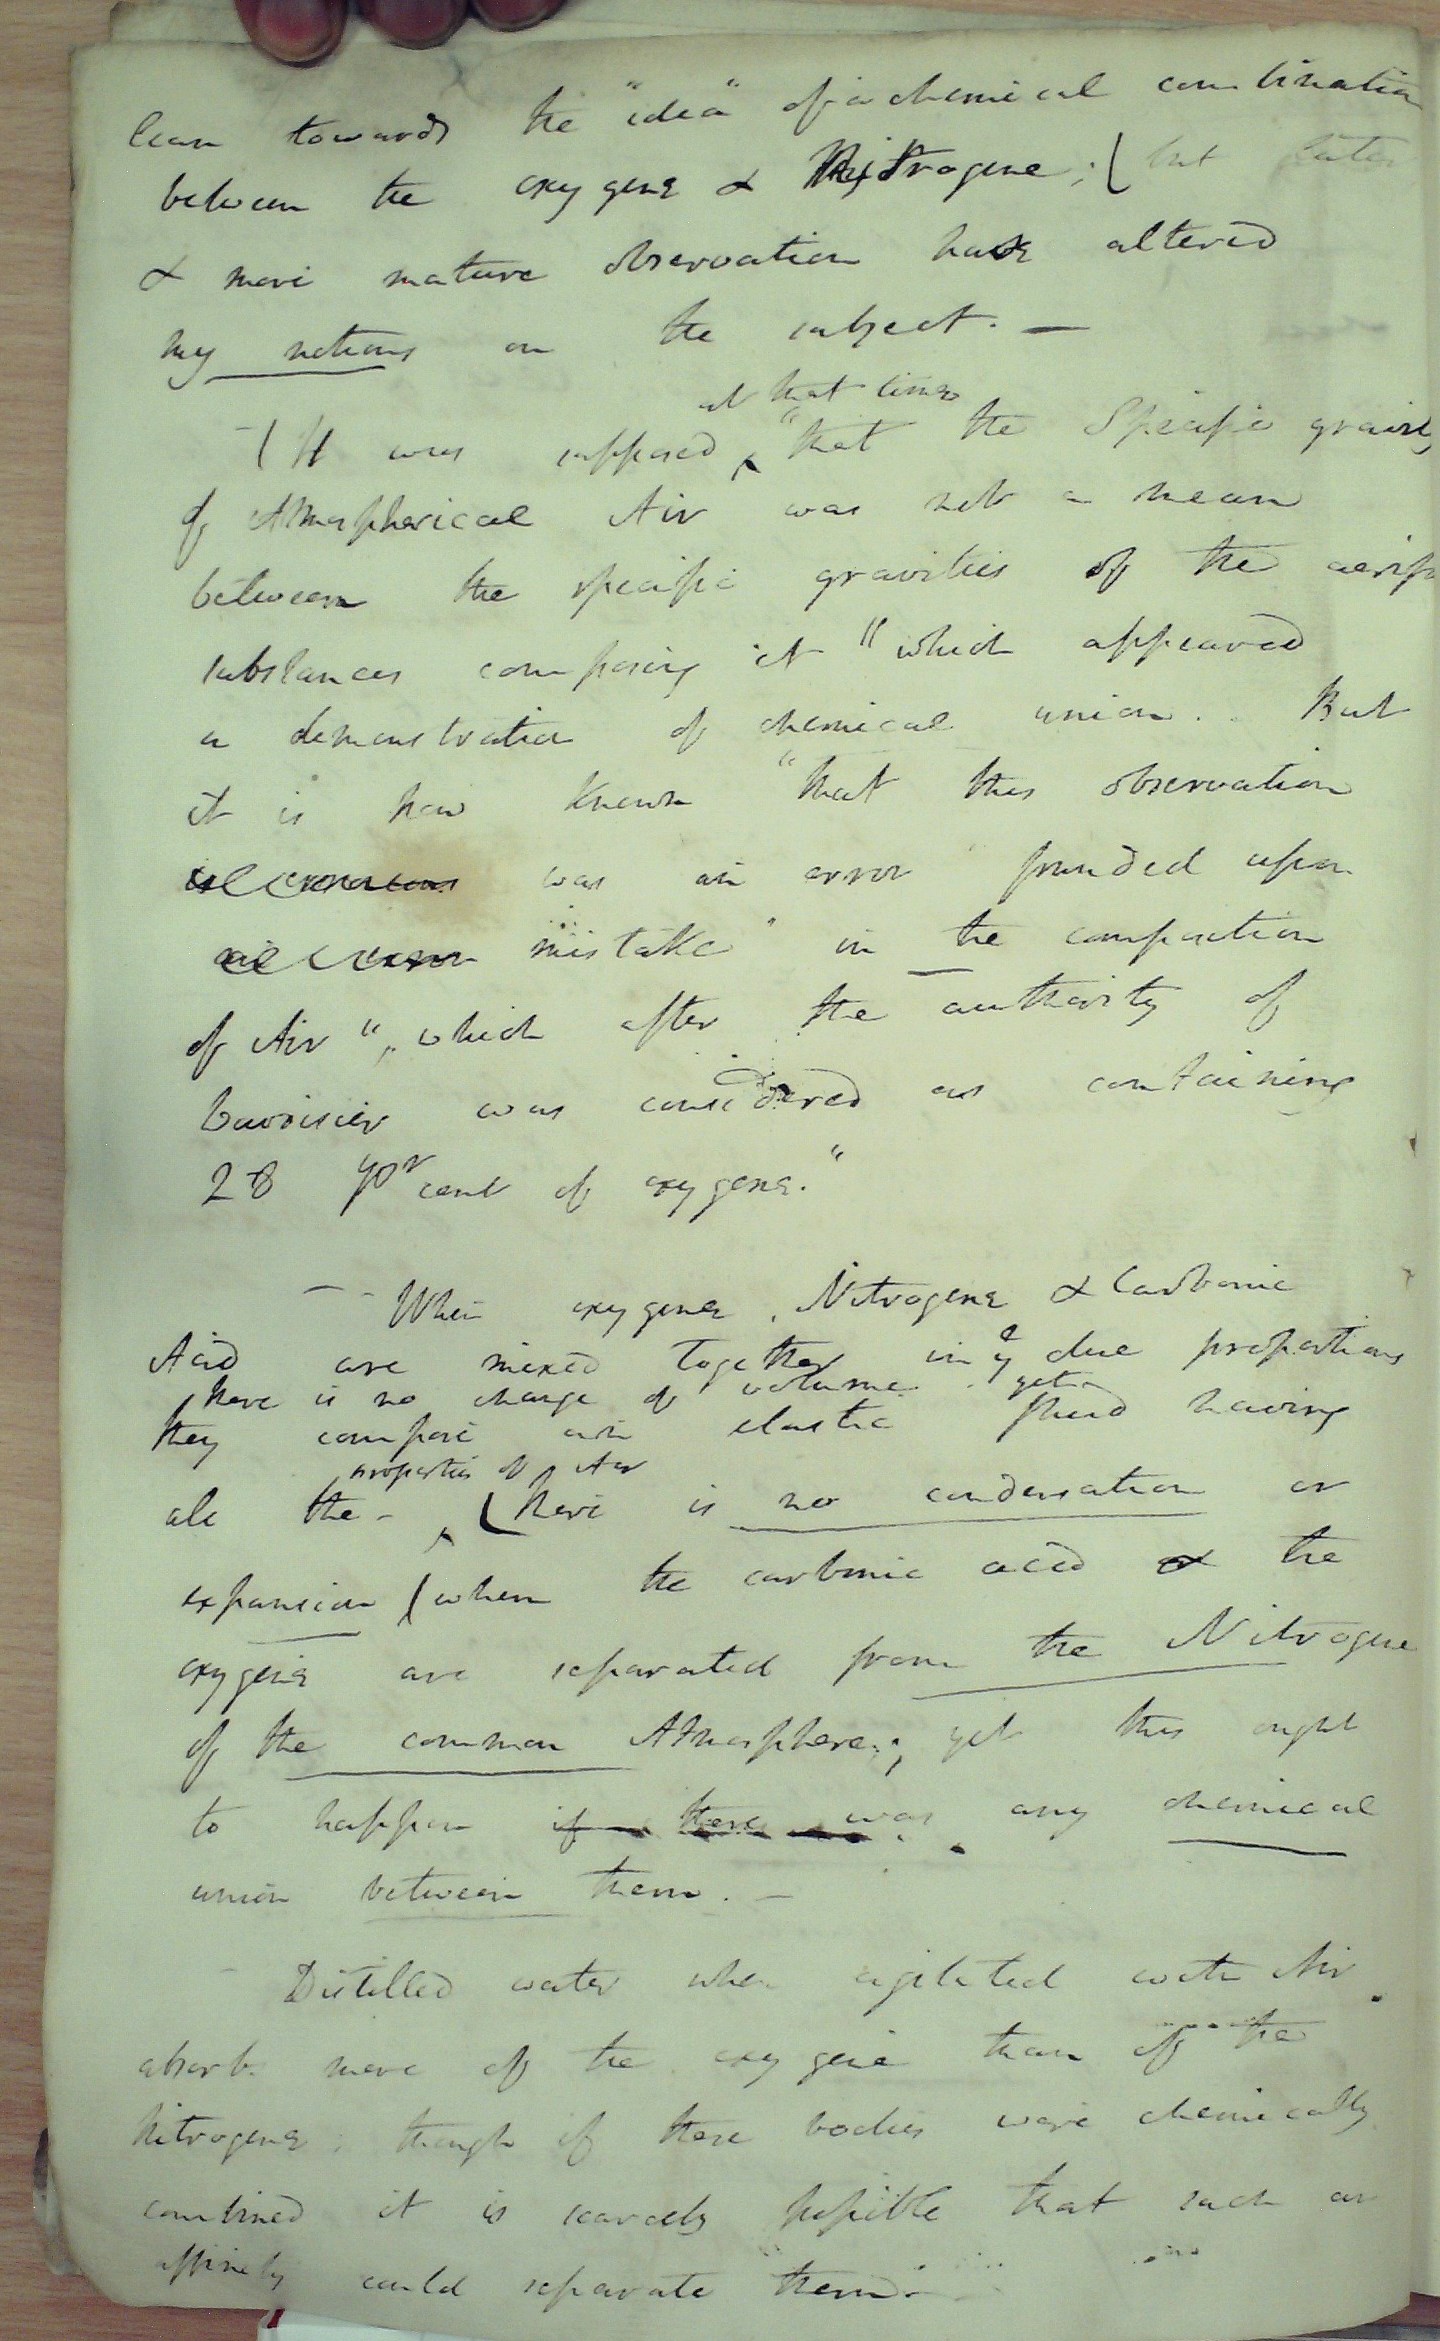 lean towards the "idea" of a chemical combination
between the oxygene & Nitrogene; ( but later
& more mature observation have altered
my notions on the subject. —
at that time
( It was supposed "that the Specific gravity
of Atmospherical Air was not a mean
between the specific gravities of the aerif
substances composing it" which appeared
a demonstration of chemical union. But
it is now known "that this observation
was an error founded upon
mistake" in the composition
of Air", which after the authority of
Lavoisier was considered as containing
28 pr cent of oxygene."
— When oxygene, Nitrogene & Carbonic
Acid are mixed together in due proportions
there is no change of volume. yet
they compose an elastic fluid having
properties of Air
all the - ( there is no condensation or
expansion ( when the carbonic acid & the
oxygene are separated from the Nitrogene
of the common Atmosphere; yet this ought
to happen if there was any chemical
union between them. —
Distilled water when agitated with Air
absorb more of the oxygene than of the
Nitrogene, though if these bodies were chemically
combined it is scarcely possible that such an
affinity could separate them.—